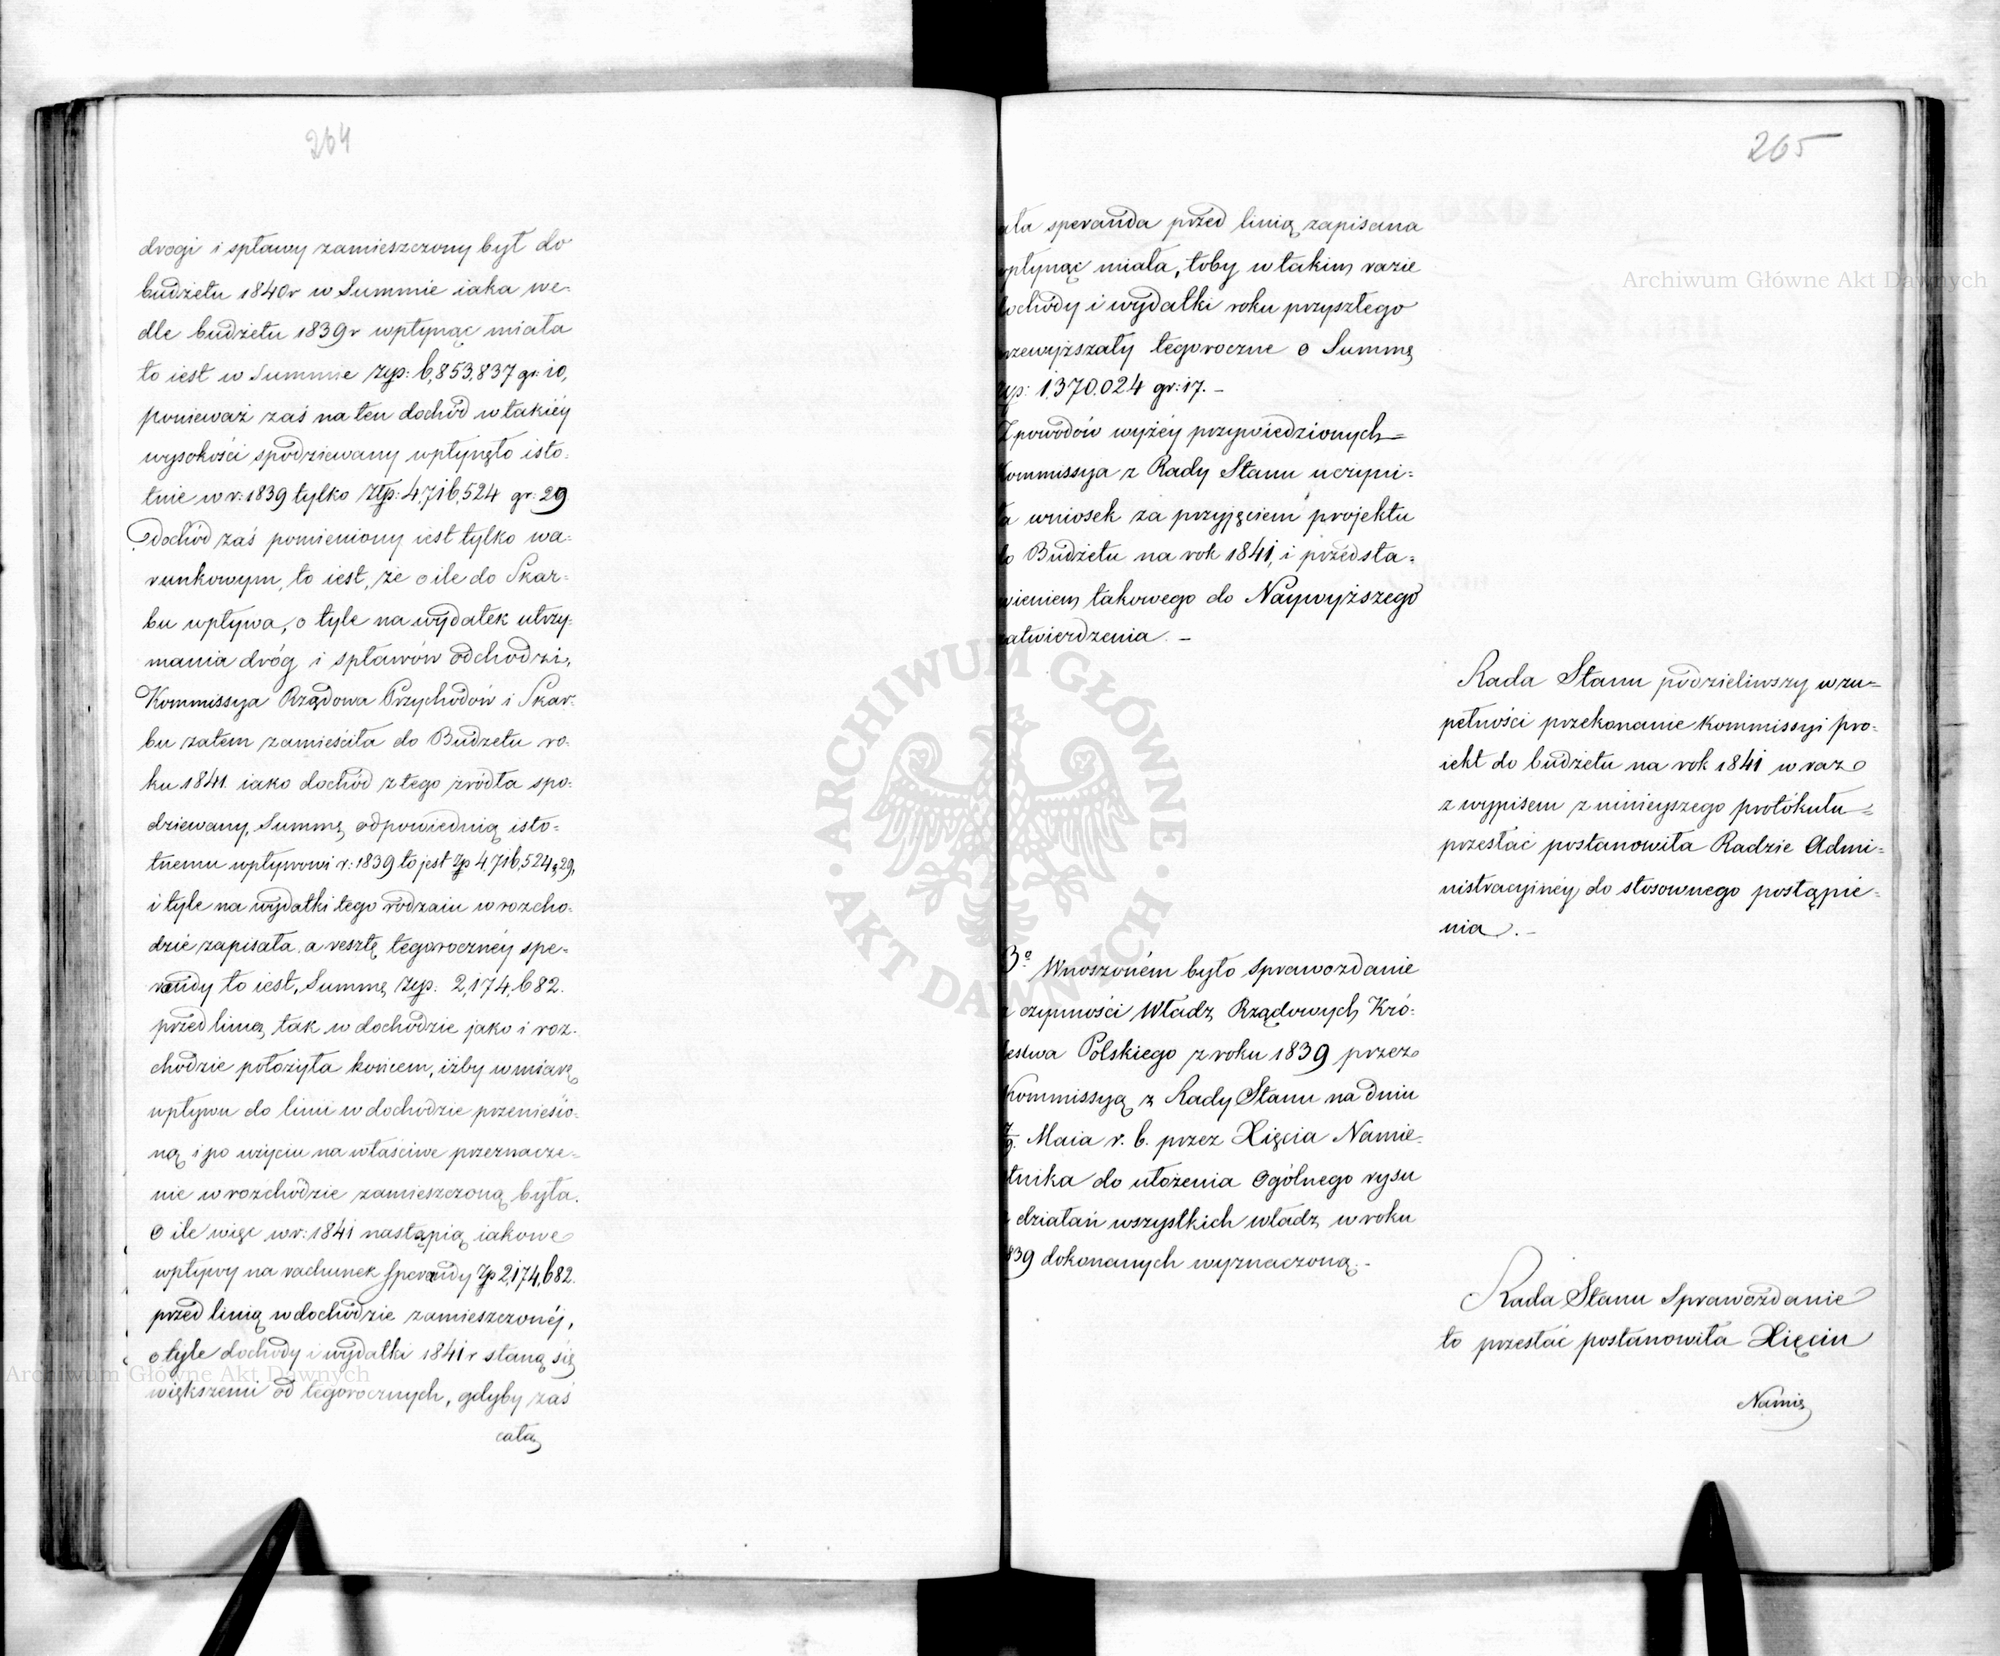 264
drogi i spławy zamieszczony był do
budżetu 1840r w Summie iaka we-
dle budżetu 1839r wpłynąć miała
to iest w Summie Złp: 6,853,837 gr: 10,
ponieważ zaś na ten dochód w takiéy
wysokości spodziewany wpłynęło isto-
tnie w r: 1839 tylko Złp: 4,716,524 gr: 29
Dochód zaś pomieniony iest tylko wa-
runkowym, to iest, że o ile do Skar-
bu wpływa, o tyle na wydatek utrzy-
mania dróg i spławów odchodzi,
Kommissya Rządowa Przychodów i Skar-
bu zatem zamieściła do Budżetu ro-
ku 1841. iako dochód z tego źródła spo-
dziewany, Summę odpowiednią isto-
tnemu wpływowi r: 1839 to jest Zp 4,716,524 g 29,
i tyle na wydatki tego rodzaiu w rozcho-
dzie zapisała, a resztę tegorocznéy spe-
randy to iest, Summę Złp. 2,174,682.
przed linią tak w dochodzie jako i roz-
chodzie położyła końcem, iżby w miarę
wpływu do linii w dochodzie przeniesio-
ną i po użyciu na właściwe przeznacze-
nie w rozchodzie zamieszczoną była.
O ile więc w r: 1841 nastąpią iakowe
wpływy na rachunek sperandy Zp 2,174,682.
przed linią w dochodzie zamieszczonéj,
o tyle dochody i wydatki 1841 r staną się
większemi od tegorocznych, gdyby zaś
cała
265
ała speranda przed linią zapisana
wpłynąć miała, toby w takim razie
dochody i wydatki roku przyszłego
przewyższały tegoroczne o Summę
Złp: 1,370,024 gr: 17. –
Z powodów wyżéy przywiedzionych
Kommissya z Rady Stanu uczyni-
ła wniosek za przyjęciem projektu
do Budżetu na rok 1841, i przedsta-
wieniem takowego do Naywyższego
zatwierdzenia. –
Rada Stanu podzieliwszy w zu-
pełności przekonanie Kommissyi pro-
iekt do budżetu na rok 1841 w raz
z wypisem z ninieyszego protokułu
przesłać postanowiła Radzie Admi-
nistracyinéy do stosownego postąpie-
nia. –
3o Wnoszoném było sprawozdanie
z czynności Władz Rządowych Kró-
lestwa Polskiego z roku 1839 przez
Kommissyą z Rady Stanu na dniu
Maia r. b. przez Xięcia Namie-
stnika do ułożenia Ogólnego rysu
działań wszystkich władz w roku
1839 dokonanych wyznaczoną. –
Rada Stanu Sprawozdanie
to przesłać postanowiła Xięciu
Namie
ARCHIWUM GŁÓWNE AKT DAWNYCH
Archiwum Główne Akt Dawnych
Archiwum Główne Akt Dawnych